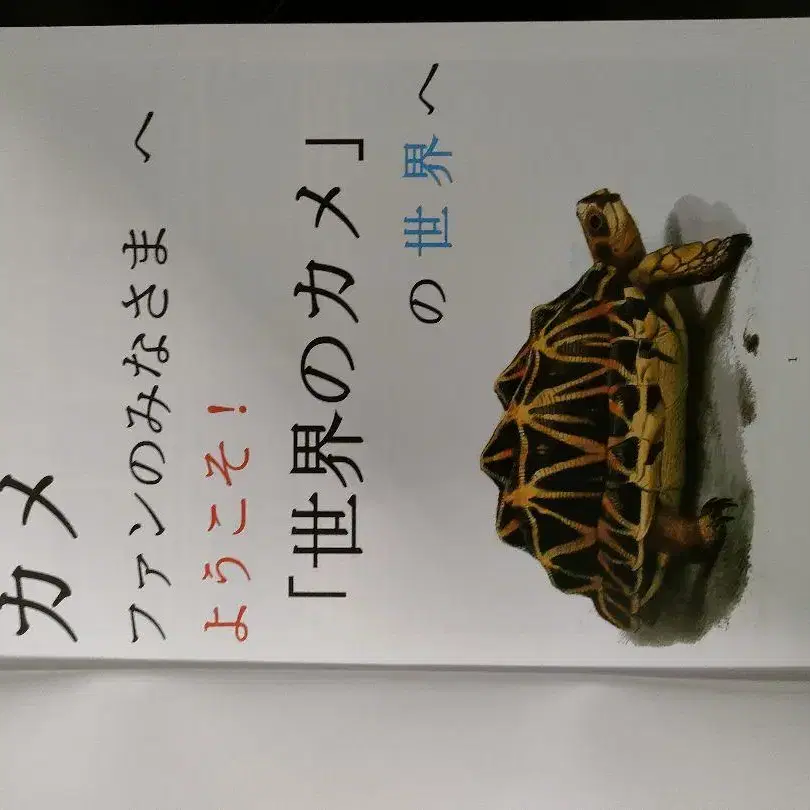 カメ
ファンのみなさま へ
ようこそ!
「世界のカメ」
の世界へ
1